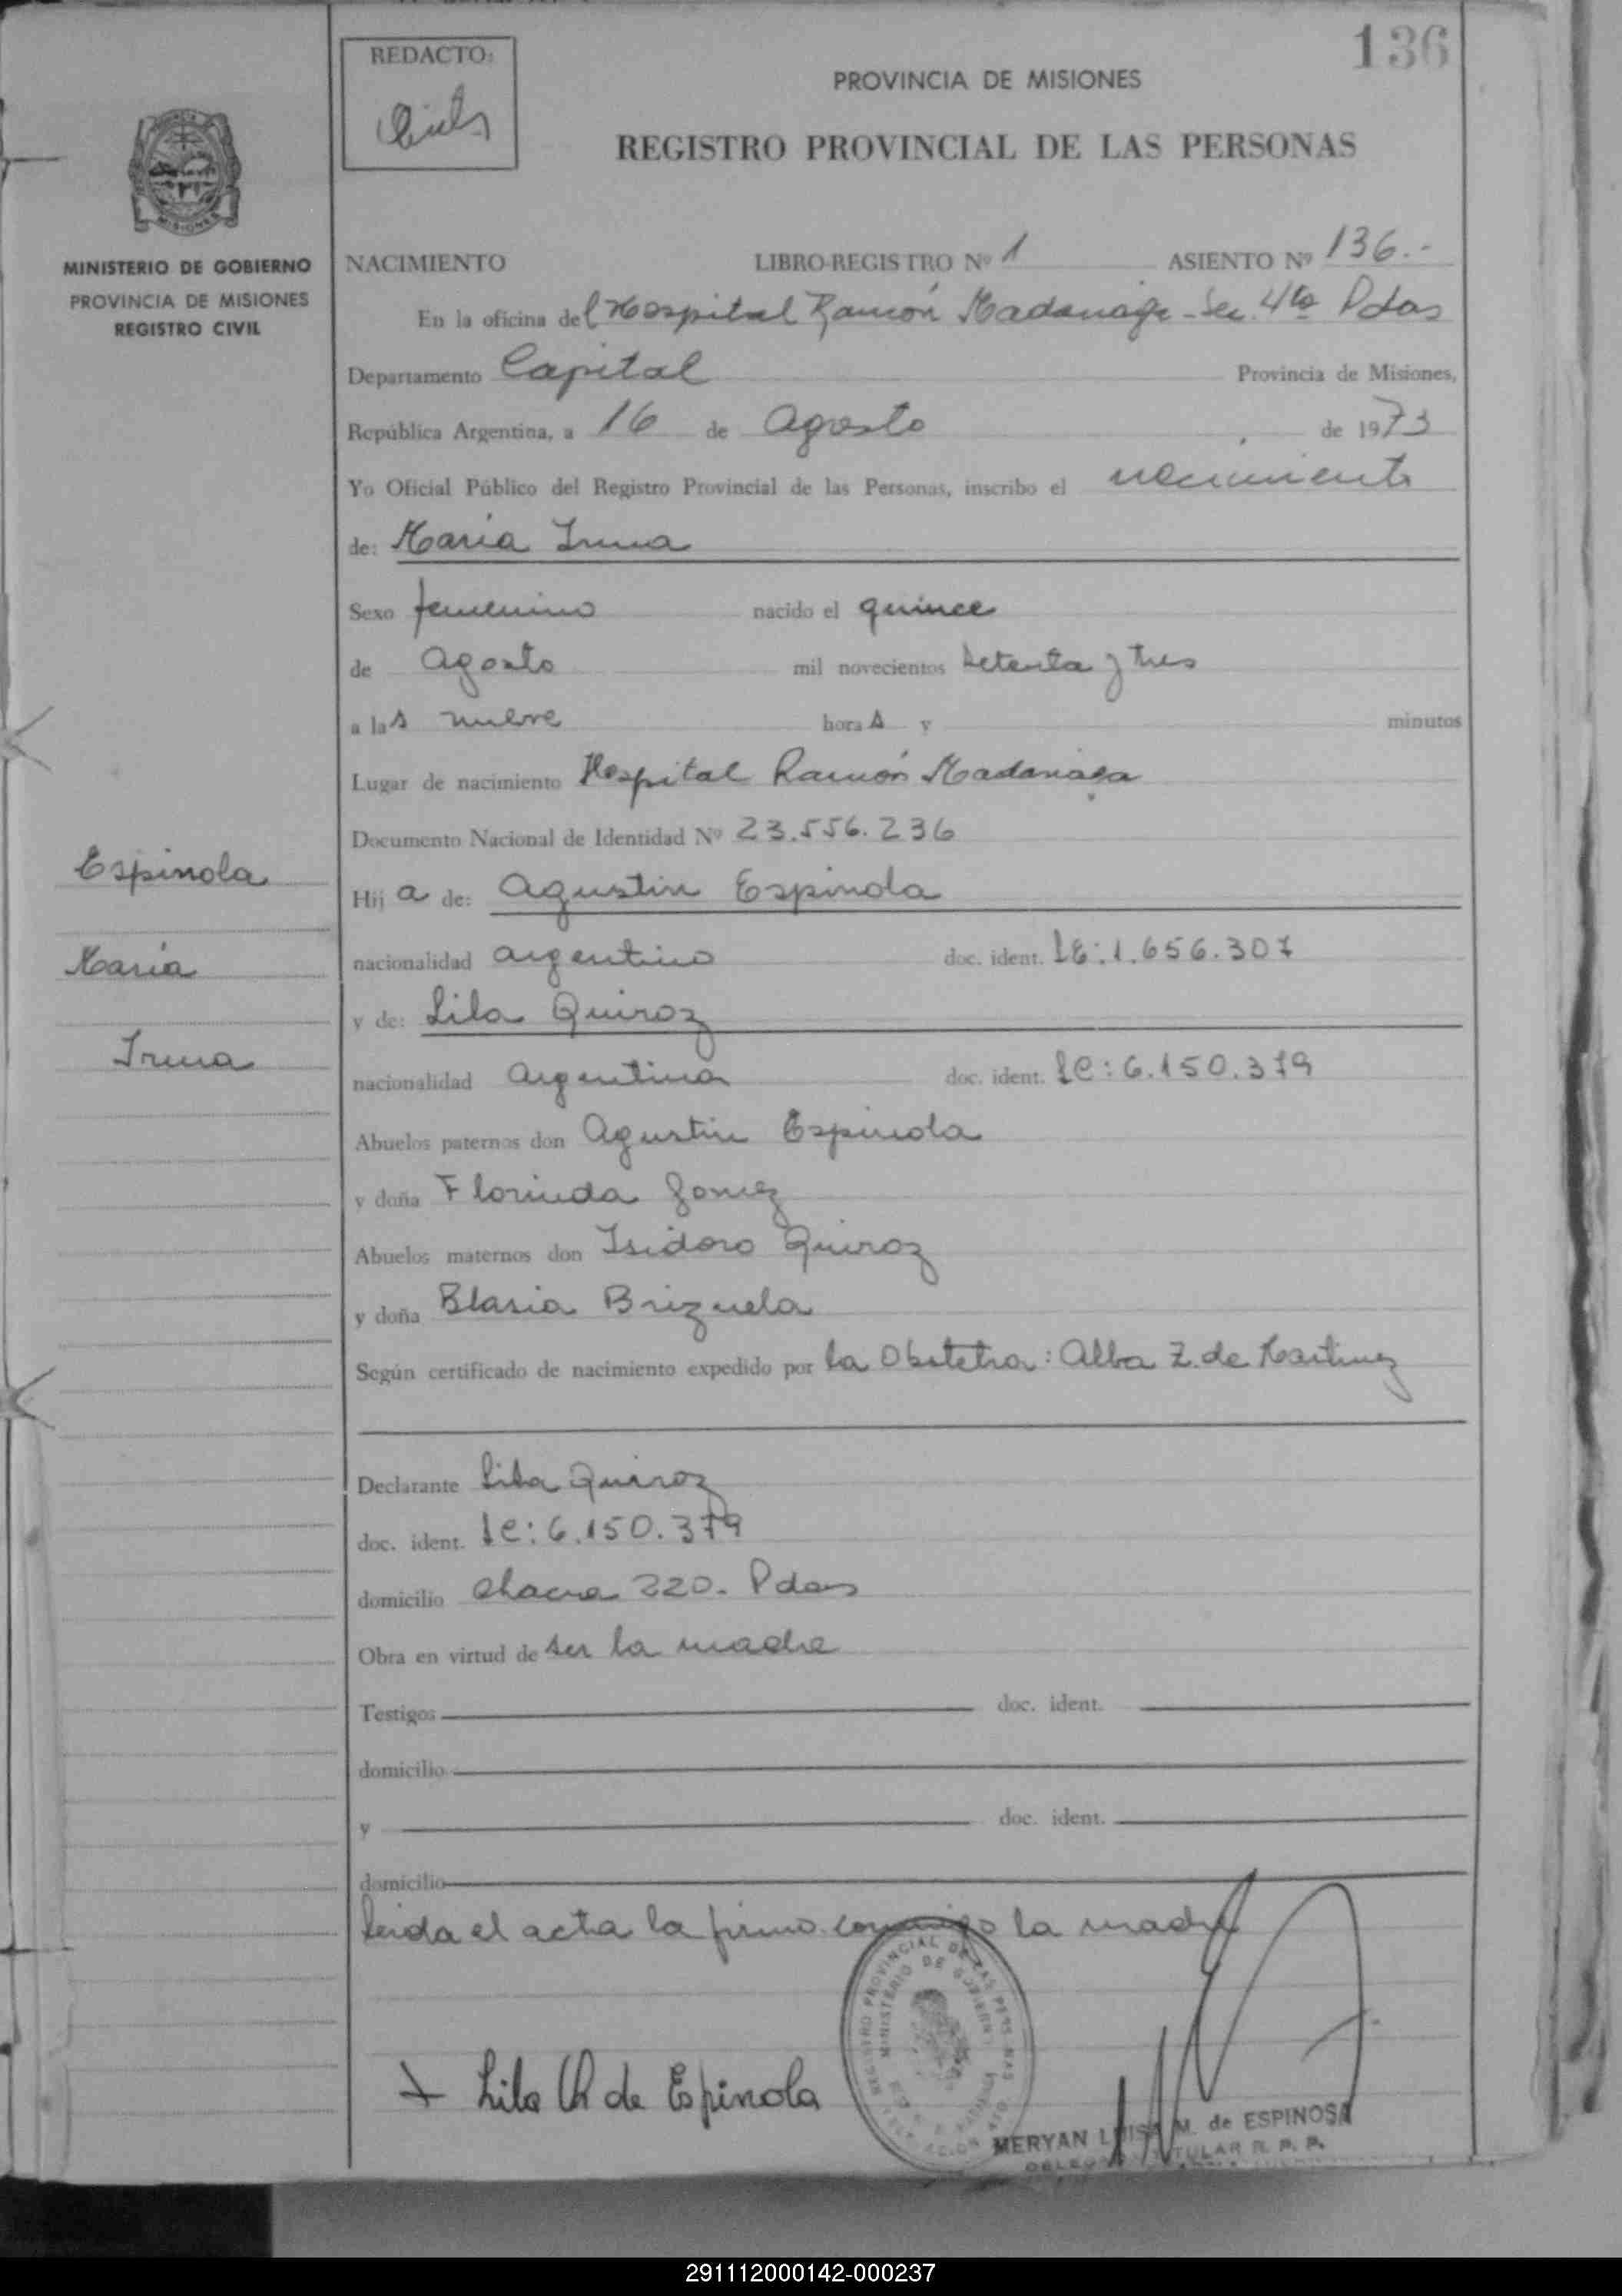 136
REDACTO:
PROVINCIA DE MISIONES
REGISTRO PROVINCIAL DE LAS PERSONAS
MISIONES
MINISTERIO DE GOBIERNO
PROVINCIA DE MISIONES
REGISTRO CIVIL
NACIMIENTO LIBRO-REGISTRO Nº 1 ASIENTO Nº 136.-
En la oficina del Hospital Ramón Madariaga - Sec. 4ta Pdas
Departamento Capital Provincia de Misiones,
República Argentina, a 16 de Agosto de 1973
Yo Oficial Público del Registro Provincial de las Personas, inscribo el nacimiento
de: María Irma
Sexo femenino nacido el quince
de Agosto mil novecientos setenta y tres
a las nueve horas y minutos
Lugar de nacimiento Hospital Ramón Madariaga
Documento Nacional de Identidad Nº 23.556.236
Espinola
Hija de: Agustin Espinola
María
nacionalidad argentino doc. ident. LE: 1.656.307
y de: Lila Quiroz
Irma
nacionalidad Argentina doc. ident. LC: 6.150.379
Abuelos paternos don Agustin Espinola
y doña Florinda Gomez
Abuelos maternos don Isidoro Quiroz
y doña Blasia Brizuela
Según certificado de nacimiento expedido por la Obstetra: Alba Z. de Martinez
Declarante Lila Quiroz
doc. ident. LC: 6.150.379
domicilio Chacra 220. Pdas
Obra en virtud de ser la madre
Testigos doc. ident.
domicilio
y doc. ident.
domicilio
leida el acta la firmo conmigo la madre
REGISTRO PROVINCIAL DE LAS PERSONAS
MINISTERIO DE GOBIERNO
+ Lila Q de Espinola
MERYAN LUISA M. de ESPINOSA
TITULAR R. P. P.
291112000142-000237